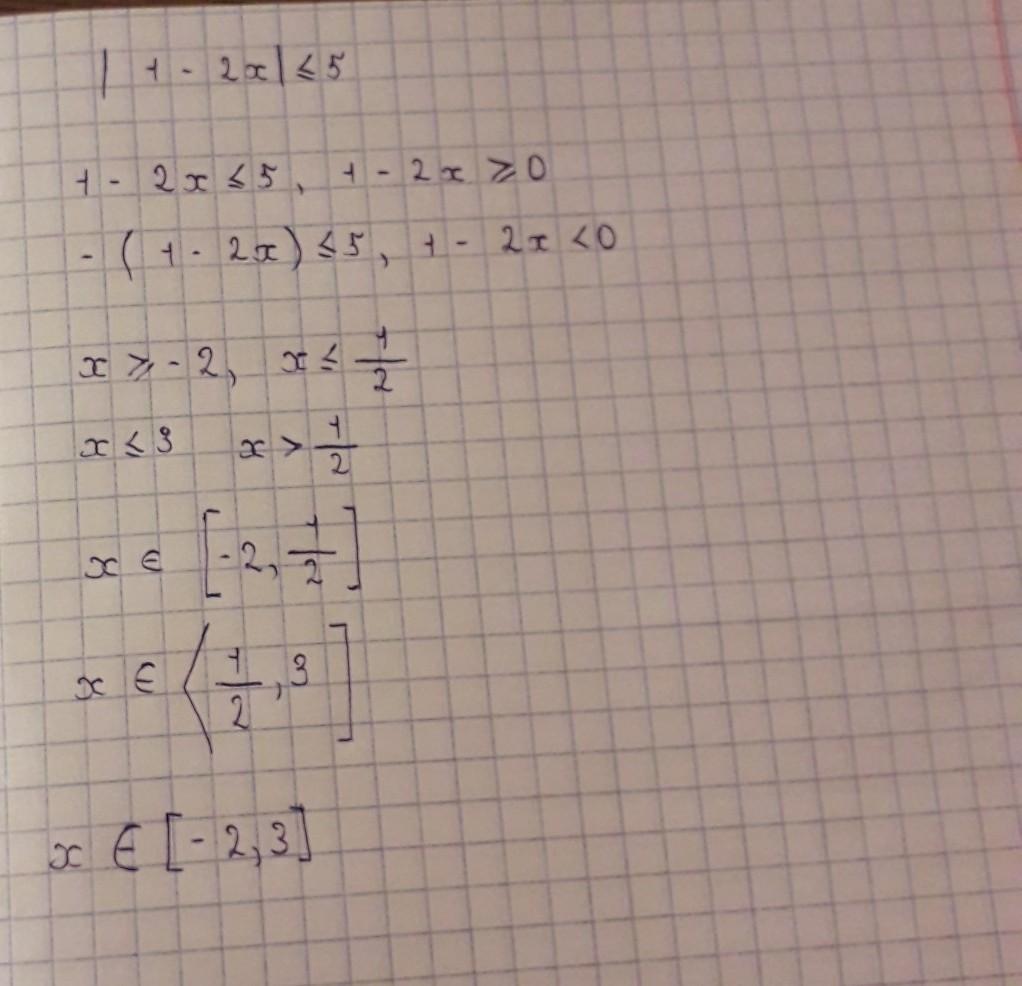 |1 - 2x| ≤ 5
1 - 2x ≤ 5, 1 - 2x ≥ 0
- (1 - 2x) ≤ 5, 1 - 2x < 0
x ≥ - 2, x ≤ 1/2
x ≤ 3 x > 1/2
x ∈ [-2, 1/2]
x ∈ ⟨1/2, 3]
x ∈ [- 2, 3]